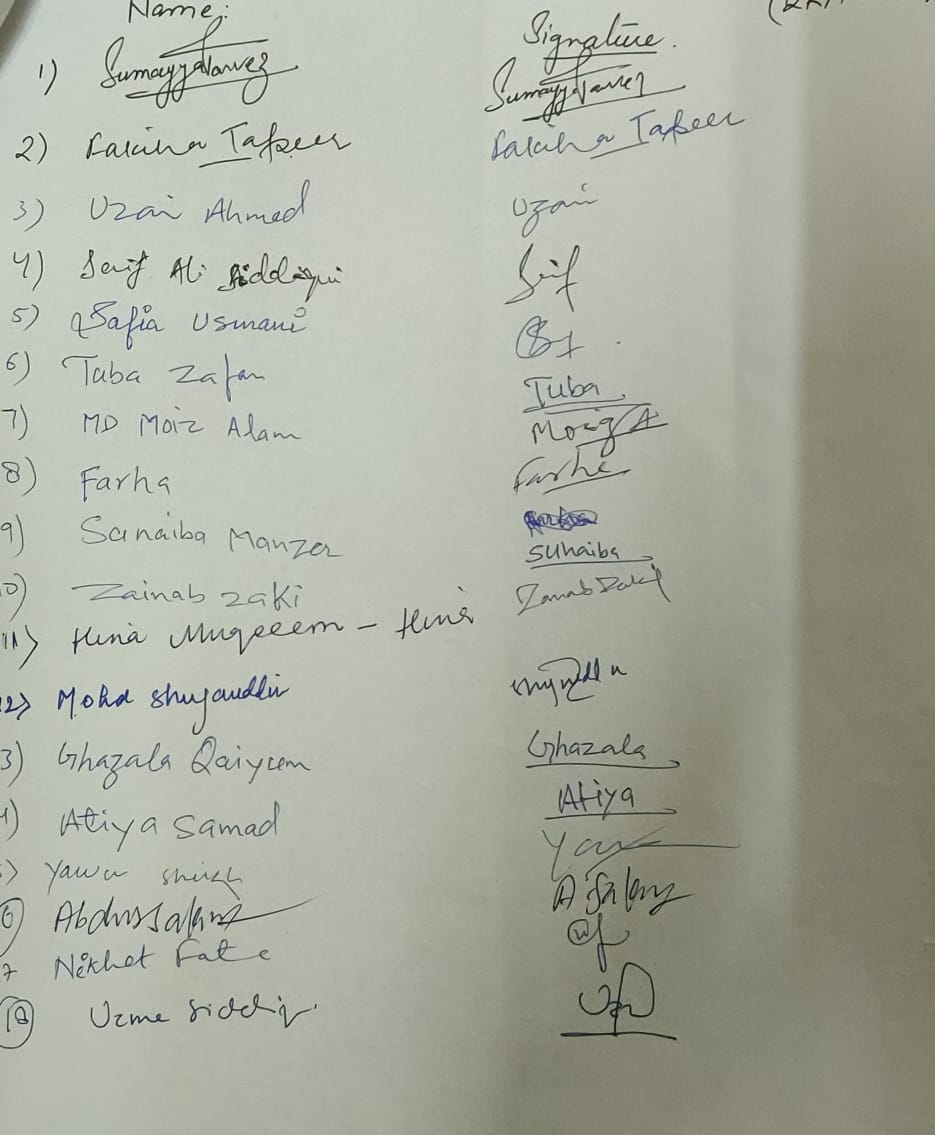 Name: Signature.
1) Sumayya Parvez Sumayya Parvez
2) Tafseer Tafseer
3) Uzai Ahmed Uzai
4) Saif Ali Siddiqui Saif
5) Safia Usmani
6) Tuba Zafar Tuba
7) MD Moiz Alam Moiz A
8) Farha Farha
9) Manzer Suhaiba
10) Zainab Zaki Zainab Zaki
11) Hina Muqeeem - Hina
12) Mohd Shujauddin
13) Ghazala Qaiyum Ghazala
14) Atiya Samad Atiya
Yawar
16) Abdus Salam A Salam
17 Nikhet
18 Uzma Siddiq